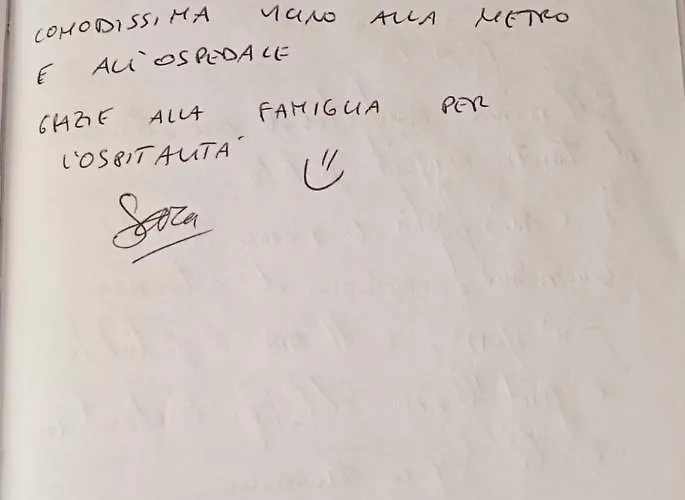 COMODISSIMA VICINO ALLA METRO
E ALL'OSPEDALE
GRAZIE ALLA FAMIGLIA PER
L'OSPITALITÀ
Sara